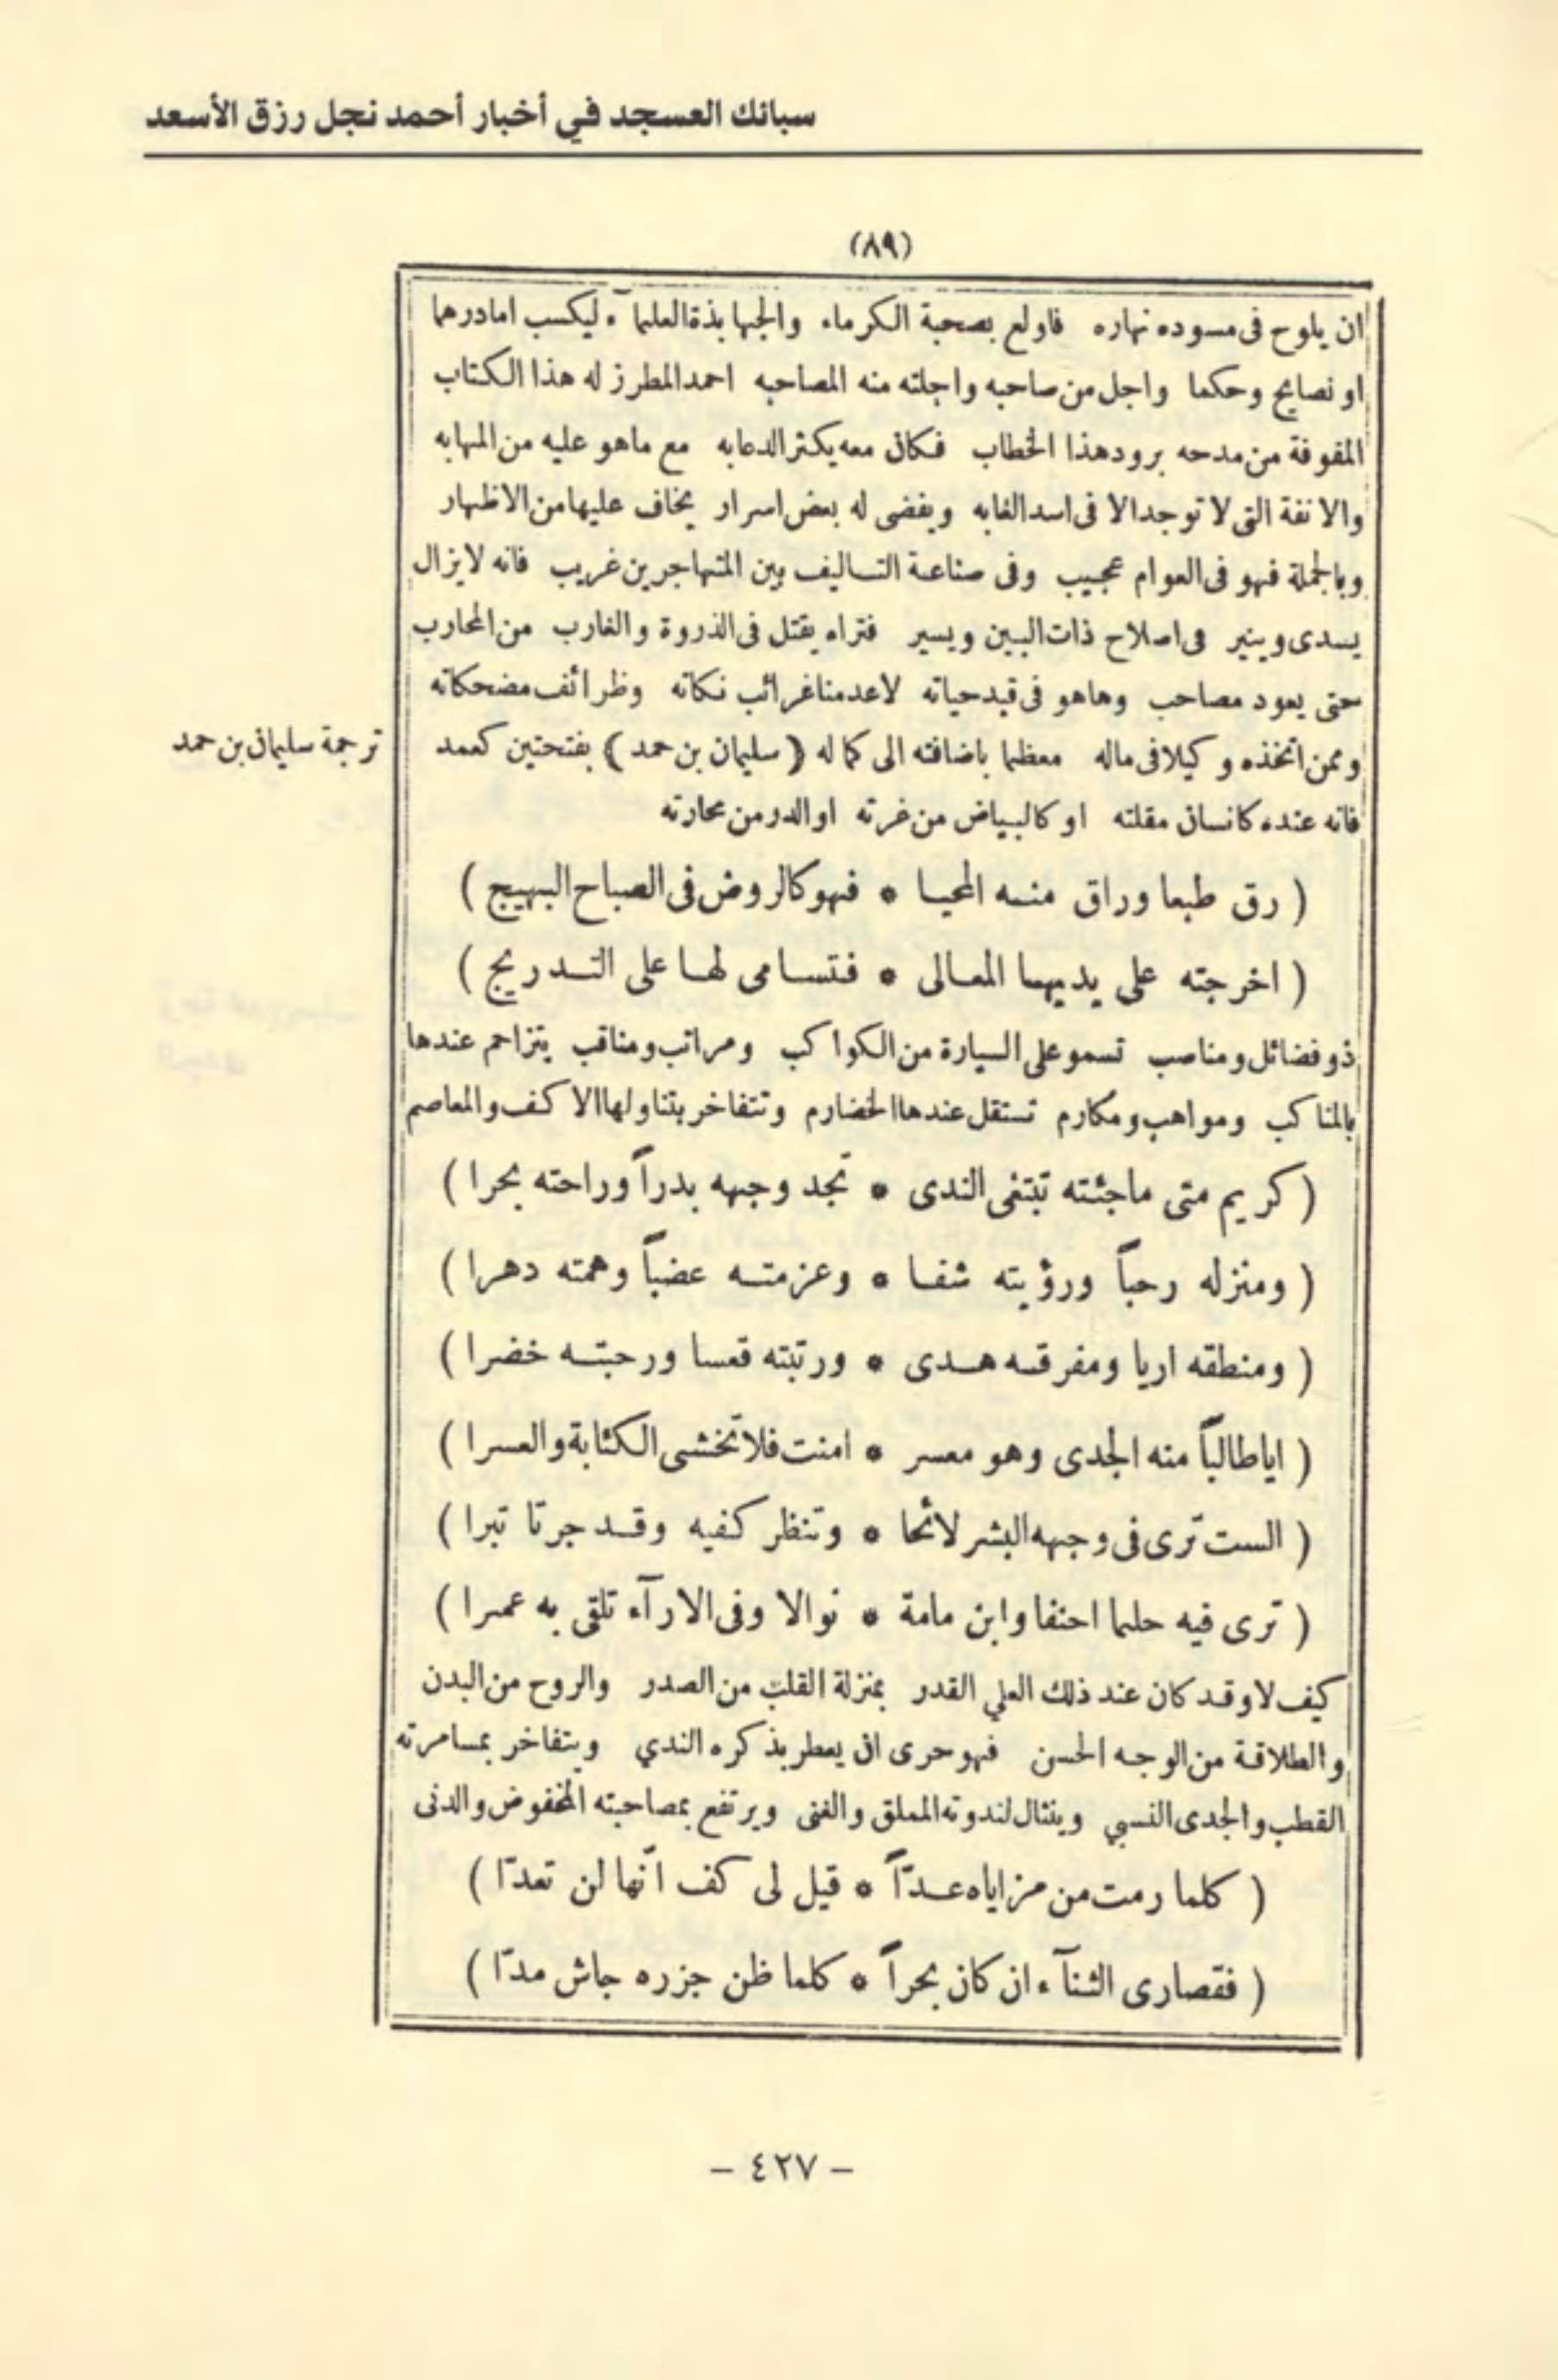 سبائك العسجد في أخبار أحمد نجل رزق الأسعد
(٨٩)
ان يلوح فى مسوده نهاره فاولع بصحبة الكرماء والجهابذة العلمآء ليكسب امادرهما
او نصايح وحكما واجل من صاحبه واجلته منه المصاحبه احمد المطرز له هذا الكتاب
المفوفة من مدحه برود هذا الخطاب فكان معه يكثر الدعابه مع ماهو عليه من المهابه
والانفة التى لا توجد الا فى اسد الغابه ويفضى له بعض اسرار يخاف عليها من الاظهار
وبالجملة فهو فى العوام عجيب وفى صناعة التساليف بين المتهاجرين غريب فانه لايزال
يسدى وينير فى اصلاح ذات البين ويسير فتراه يفتل فى الذروة والغارب من المحارب
حتى يعود مصاحب وهاهو فى قيد حياته لاعدمنا غرائب نكاته وظرائف مضحكاته
وممن اتخذه وكيلا فى ماله معظما باضافته الى كماله ( سليمان بن حمد ) بفتحتين كعمد
ترجمة سليمان بن حمد
فانه عنده كانسان مقلته او كالبياض من غرته او الدر من محارته
( رق طبعا وراق منه المحيا * فهو كالروض فى الصباح البهيج )
( اخرجته على يديها المعالى * فتسامى لها على التدريج )
ذو فضائل ومناصب تسمو على السيارة من الكواكب ومراتب ومناقب يتزاحم عندها
بالمناكب ومواهب ومكارم تستقل عندها الخضارم وتتفاخر بتناولها الاكف والمعاصم
( كريم متى ماجئته تبتغى الندى * تجد وجهه بدراً وراحته بحرا )
( ومنزله رحباً ورؤيته شفا * وعزمته عضباً وهمته دهرا )
( ومنطقه اريا ومفرقه هدى * ورتبته قعسا ورحبته خضرا )
( اياطالباً منه الجدى وهو معسر * امنت فلا تخشى الكئابة والعسرا )
( الست ترى فى وجهه البشر لائحا * وتنظر كفيه وقد جرتا تبرا )
( ترى فيه حلما احنفا وابن مامة * نوالا وفى الارآء تلقى به عمرا )
كيف لا وقد كان عند ذلك العلي القدر بمنزلة القلب من الصدر والروح من البدن
والطلاقة من الوجه الحسن فهو حرى ان يعطر بذكره الندي ويتفاخر بمسامرته
القطب والجدى النسبي وينثال لندوته المملق والغنى ويرتفع بمصاحبته المخفوض والدنى
( كلما رمت من مزاياه عدّاً * قيل لى كف انّها لن تعدّا )
( فقصارى الثنآء ان كان بحراً * كلما ظن جزره جاش مدّا )
- ٤٢٧ -